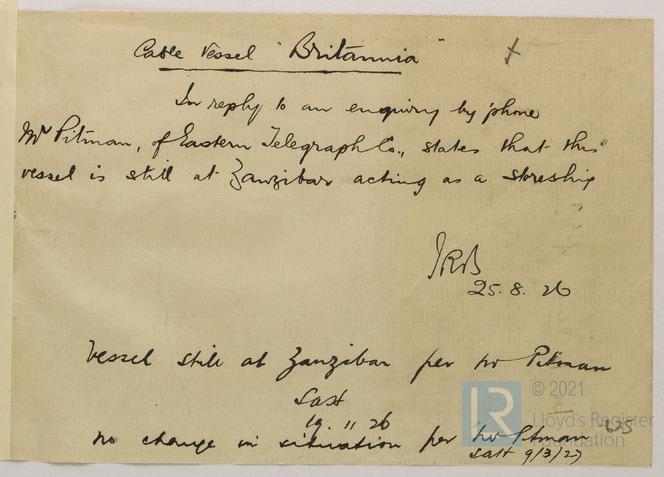 Cable Vessel "Britannia"
In reply to an enquiry by phone
Mr Pitman, of Eastern Telegraph Co., states that this
vessel is still at Zanzibar acting as a storeship
JRB
25.8.26
Vessel still at Zanzibar per Mr Pitman
19.11.26
No change in situation per Mr Pitman
9/3/27
© 2021
LR
Lloyd's Register
Foundation